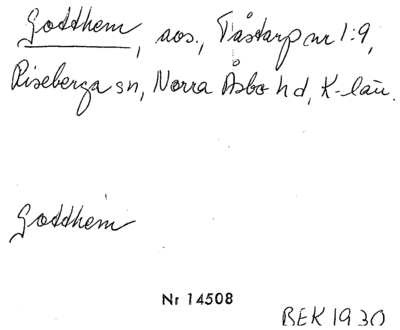 Godthem, aos., Tåstarp nr 1:9,
Riseberga sn, Norra Åsbo hd, K-län.
Godthem
Nr 14508
BEK 1930